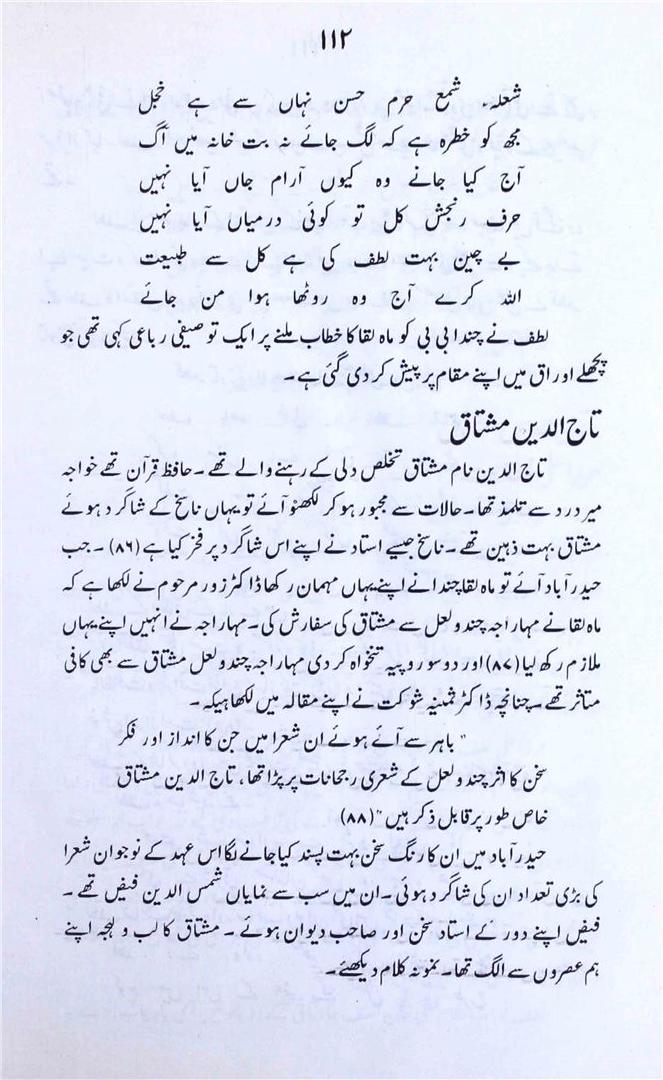 ۱۱۲
شعلہ۔ شمع حرم حسن نہاں سے ہے خجل
مجھ کو خطرہ ہے کہ لگ جائے نہ بت خانہ میں آگ
آج کیا جانے وہ کیوں آرام جاں آیا نہیں
حرف رنجش کل تو کوئی درمیاں آیا نہیں
بے چین بہت لطف کی ہے کل سے طبیعت
اللہ کرے آج وہ روٹھا ہوا من جائے
لطف نے چندا بی بی کو ماہ لقا کا خطاب ملنے پر ایک توصیفی رباعی کہی تھی جو
پچھلے اوراق میں اپنے مقام پر پیش کر دی گئی ہے۔
تاج الدین مشتاق
تاج الدین نام مشتاق تخلص دلی کے رہنے والے تھے۔ حافظ قرآن تھے خواجہ
میر درد سے تلمذ تھا۔ حالات سے مجبور ہو کر لکھنؤ آئے تو یہاں ناسخ کے شاگرد ہوئے
مشتاق بہت ذہین تھے۔ ناسخ جیسے استاد نے اپنے اس شاگرد پر فخر کیا ہے (۸۶)۔ جب
حیدرآباد آئے تو ماہ لقا چندا نے اپنے یہاں مہمان رکھا ڈاکٹر زور مرحوم نے لکھا ہے کہ
ماہ لقا نے مہاراجہ چندولعل سے مشتاق کی سفارش کی۔ مہاراجہ نے انہیں اپنے یہاں
ملازم رکھ لیا (۸۷) اور دو سو روپیہ تنخواہ کر دی مہاراجہ چندولعل مشتاق سے بھی کافی
متاثر تھے۔ چنانچہ ڈاکٹر ثمینہ شوکت نے اپنے مقالہ میں لکھا ہیکہ۔
"باہر سے آئے ہوئے ان شعرا میں جن کا انداز اور فکر
سخن کا اثر چندولعل کے شعری رجحانات پر پڑا تھا، تاج الدین مشتاق
خاص طور پر قابل ذکر ہیں" (۸۸)
حیدرآباد میں ان کا رنگ سخن بہت پسند کیا جانے لگا اس عہد کے نوجوان شعرا
کی بڑی تعداد ان کی شاگرد ہوئی۔ ان میں سب سے نمایاں شمس الدین فیض تھے۔
فیض اپنے دور کے استاد سخن اور صاحب دیوان ہوئے۔ مشتاق کا لب و لہجہ اپنے
ہم عصروں سے الگ تھا۔ نمونہ کلام دیکھئے۔